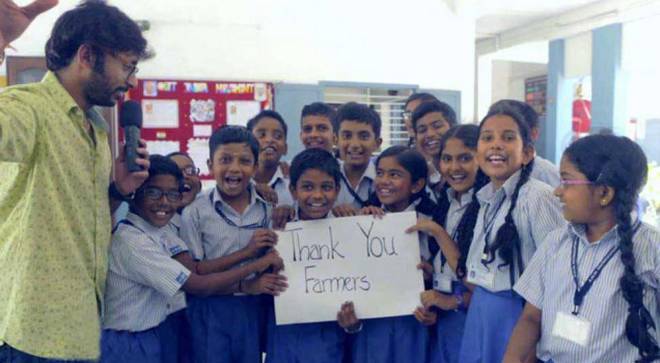 Thank You
Farmers